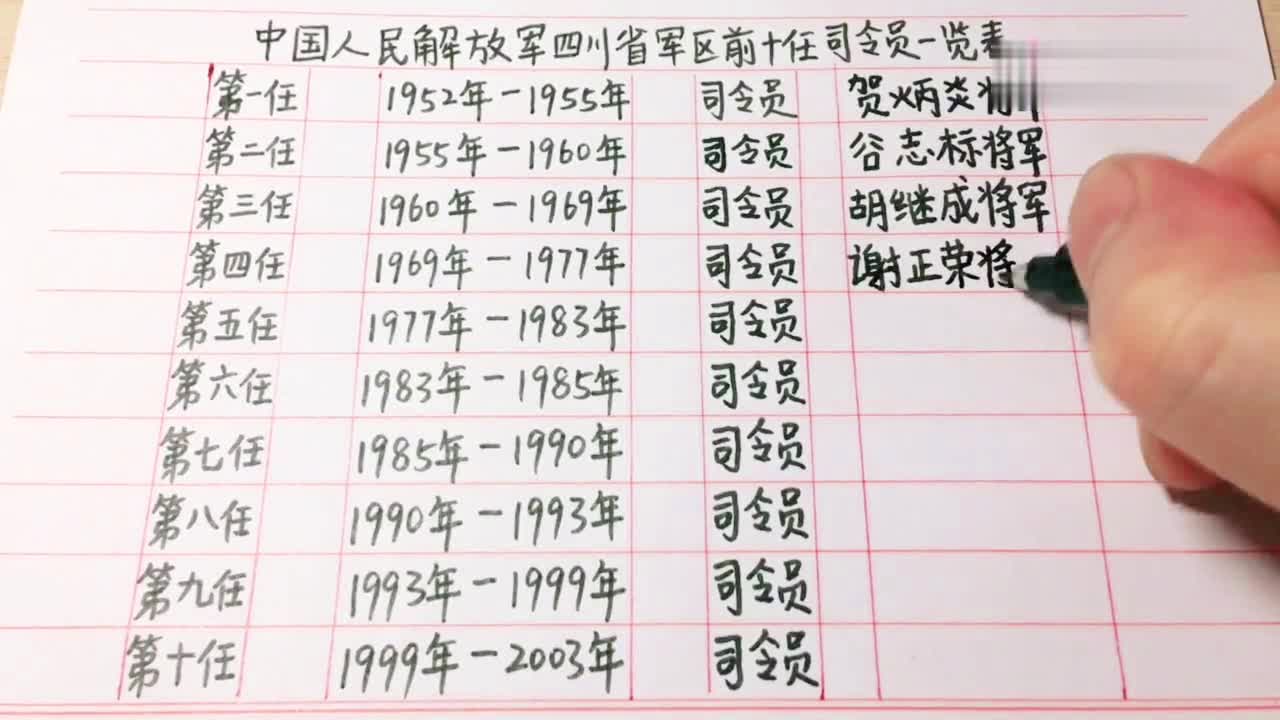 中国人民解放军四川省军区前十任司令员一览表
第一任 1952年-1955年 司令员 贺炳炎将
第二任 1955年-1960年 司令员 谷志标将军
第三任 1960年-1969年 司令员 胡继成将军
第四任 1969年-1977年 司令员 谢正荣将
第五任 1977年-1983年 司令员
第六任 1983年-1985年 司令员
第七任 1985年-1990年 司令员
第八任 1990年-1993年 司令员
第九任 1993年-1999年 司令员
第十任 1999年-2003年 司令员